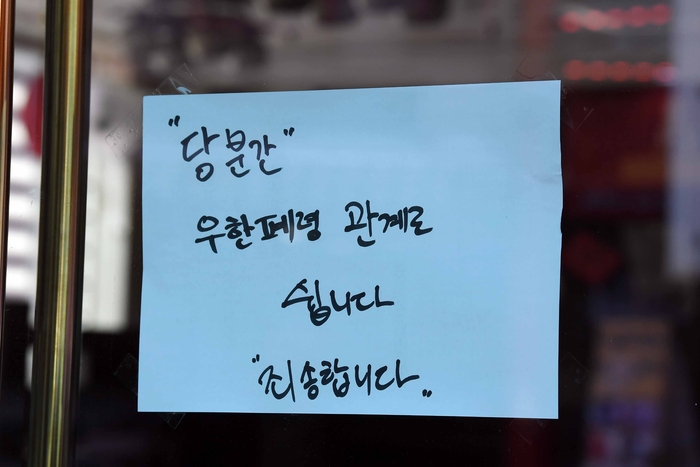 "당분간"
우한폐렴 관계로
쉽니다
"죄송합니다"